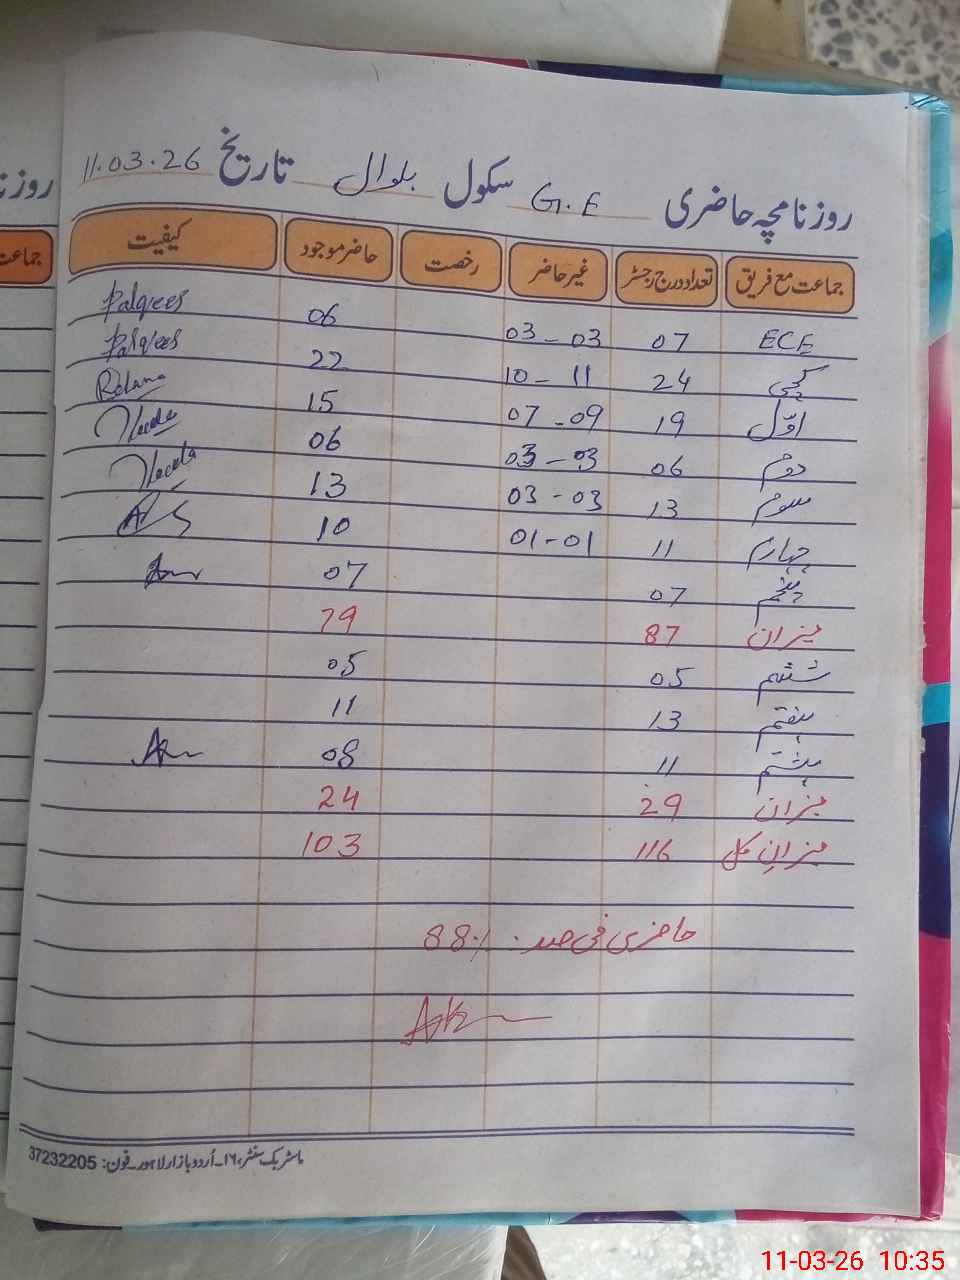 روزنامچہ حاضری G.E سکول بلوال تاریخ 11.03.26
جماعت مع فریق تعداد درج رجسٹر غیر حاضر رخصت حاضر موجود کیفیت
ECE 07 03 - 03 06 Balqees
کچی 24 10 - 11 22 Balqees
اوّل 19 07 - 09 15
دوم 06 03 - 03 06
سوم 13 03 - 03 13
چہارم 11 01 - 01 10
پنجم 07 07
میزان 87 79
ششم 05 05
ہفتم 13 11
ہشتم 11 08
میزان 29 24
میزان کل 116 103
حاضری فی صد 88%
ماسٹر بک سنٹر، ۱۶۔ اُردو بازار لاہور۔ فون: 37232205
روزنا
جماعت
11-03-26 10:35